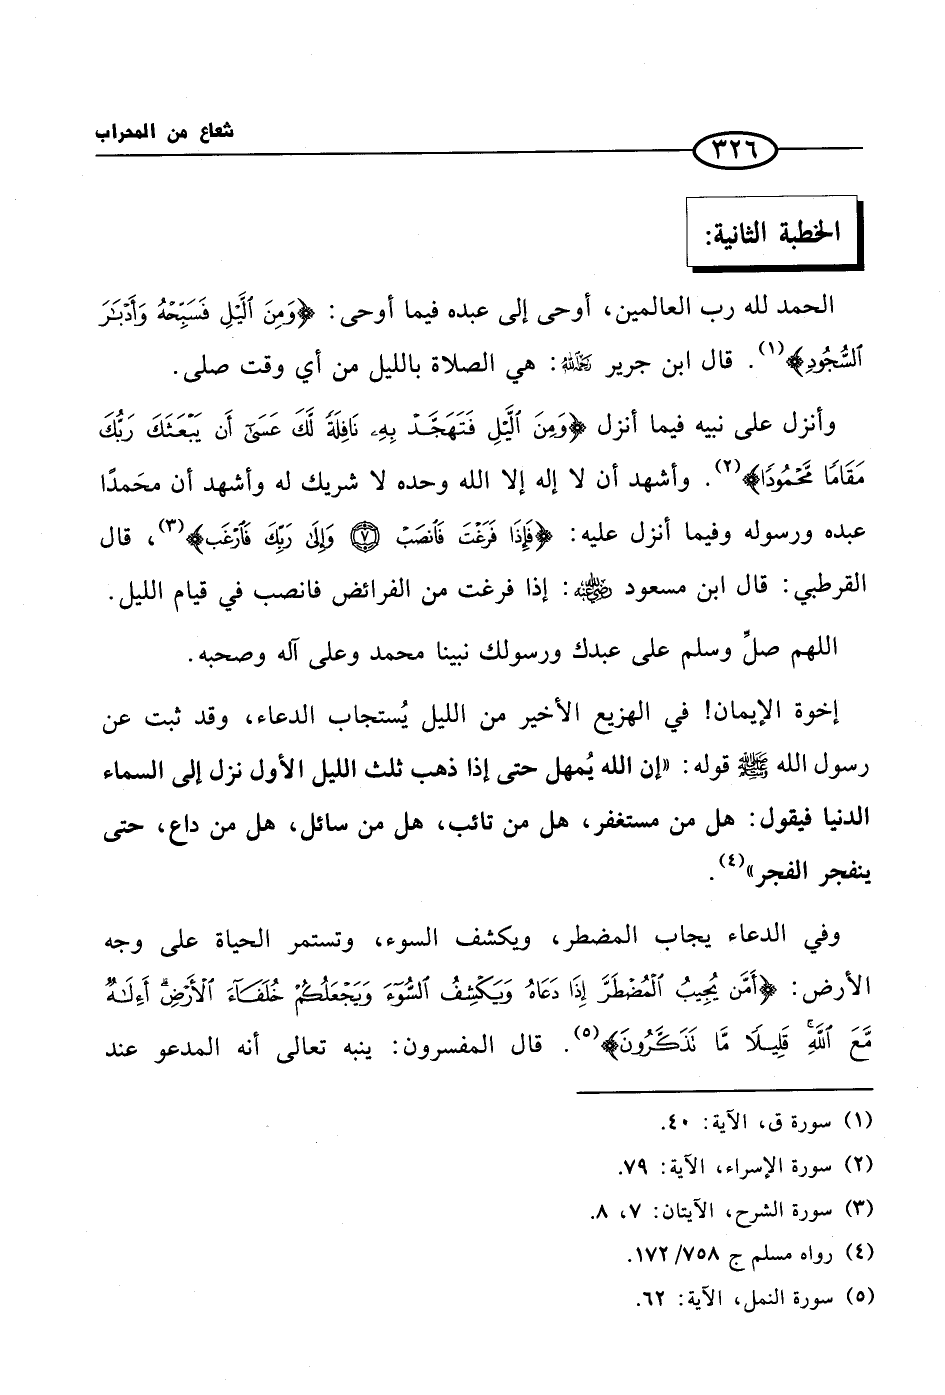 شعاع من المحراب
٣٢٦
الخطبة الثانية:
الحمد لله رب العالمين، أوحى إلى عبده فيما أوحى: ﴿وَمِنَ ٱلَّيْلِ فَسَبِّحْهُ وَأَدْبَٰرَ
ٱلسُّجُودِ﴾(١). قال ابن جرير رحمه الله: هي الصلاة بالليل من أي وقت صلى.
وأنزل على نبيه فيما أنزل ﴿وَمِنَ ٱلَّيْلِ فَتَهَجَّدْ بِهِۦ نَافِلَةً لَّكَ عَسَىٰٓ أَن يَبْعَثَكَ رَبُّكَ
مَقَامًا مَّحْمُودًا﴾(٢). وأشهد أن لا إله إلا الله وحده لا شريك له وأشهد أن محمدًا
عبده ورسوله وفيما أنزل عليه: ﴿فَإِذَا فَرَغْتَ فَٱنصَبْ ٧ وَإِلَىٰ رَبِّكَ فَٱرْغَب﴾(٣)، قال
القرطبي: قال ابن مسعود رضي الله عنه: إذا فرغت من الفرائض فانصب في قيام الليل.
اللهم صلِّ وسلم على عبدك ورسولك نبينا محمد وعلى آله وصحبه.
إخوة الإيمان! في الهزيع الأخير من الليل يُستجاب الدعاء، وقد ثبت عن
رسول الله ﷺ قوله: «إن الله يُمهل حتى إذا ذهب ثلث الليل الأول نزل إلى السماء
الدنيا فيقول: هل من مستغفر، هل من تائب، هل من سائل، هل من داع، حتى
ينفجر الفجر»(٤).
وفي الدعاء يجاب المضطر، ويكشف السوء، وتستمر الحياة على وجه
الأرض: ﴿أَمَّن يُجِيبُ ٱلْمُضْطَرَّ إِذَا دَعَاهُ وَيَكْشِفُ ٱلسُّوٓءَ وَيَجْعَلُكُمْ خُلَفَآءَ ٱلْأَرْضِ ۗ أَءِلَٰهٌ
مَّعَ ٱللَّهِ ۚ قَلِيلًا مَّا تَذَكَّرُونَ﴾(٥). قال المفسرون: ينبه تعالى أنه المدعو عند
(١) سورة ق، الآية: ٤٠.
(٢) سورة الإسراء، الآية: ٧٩.
(٣) سورة الشرح، الآيتان: ٧، ٨.
(٤) رواه مسلم ج ١٧٢/٧٥٨.
(٥) سورة النمل، الآية: ٦٢.